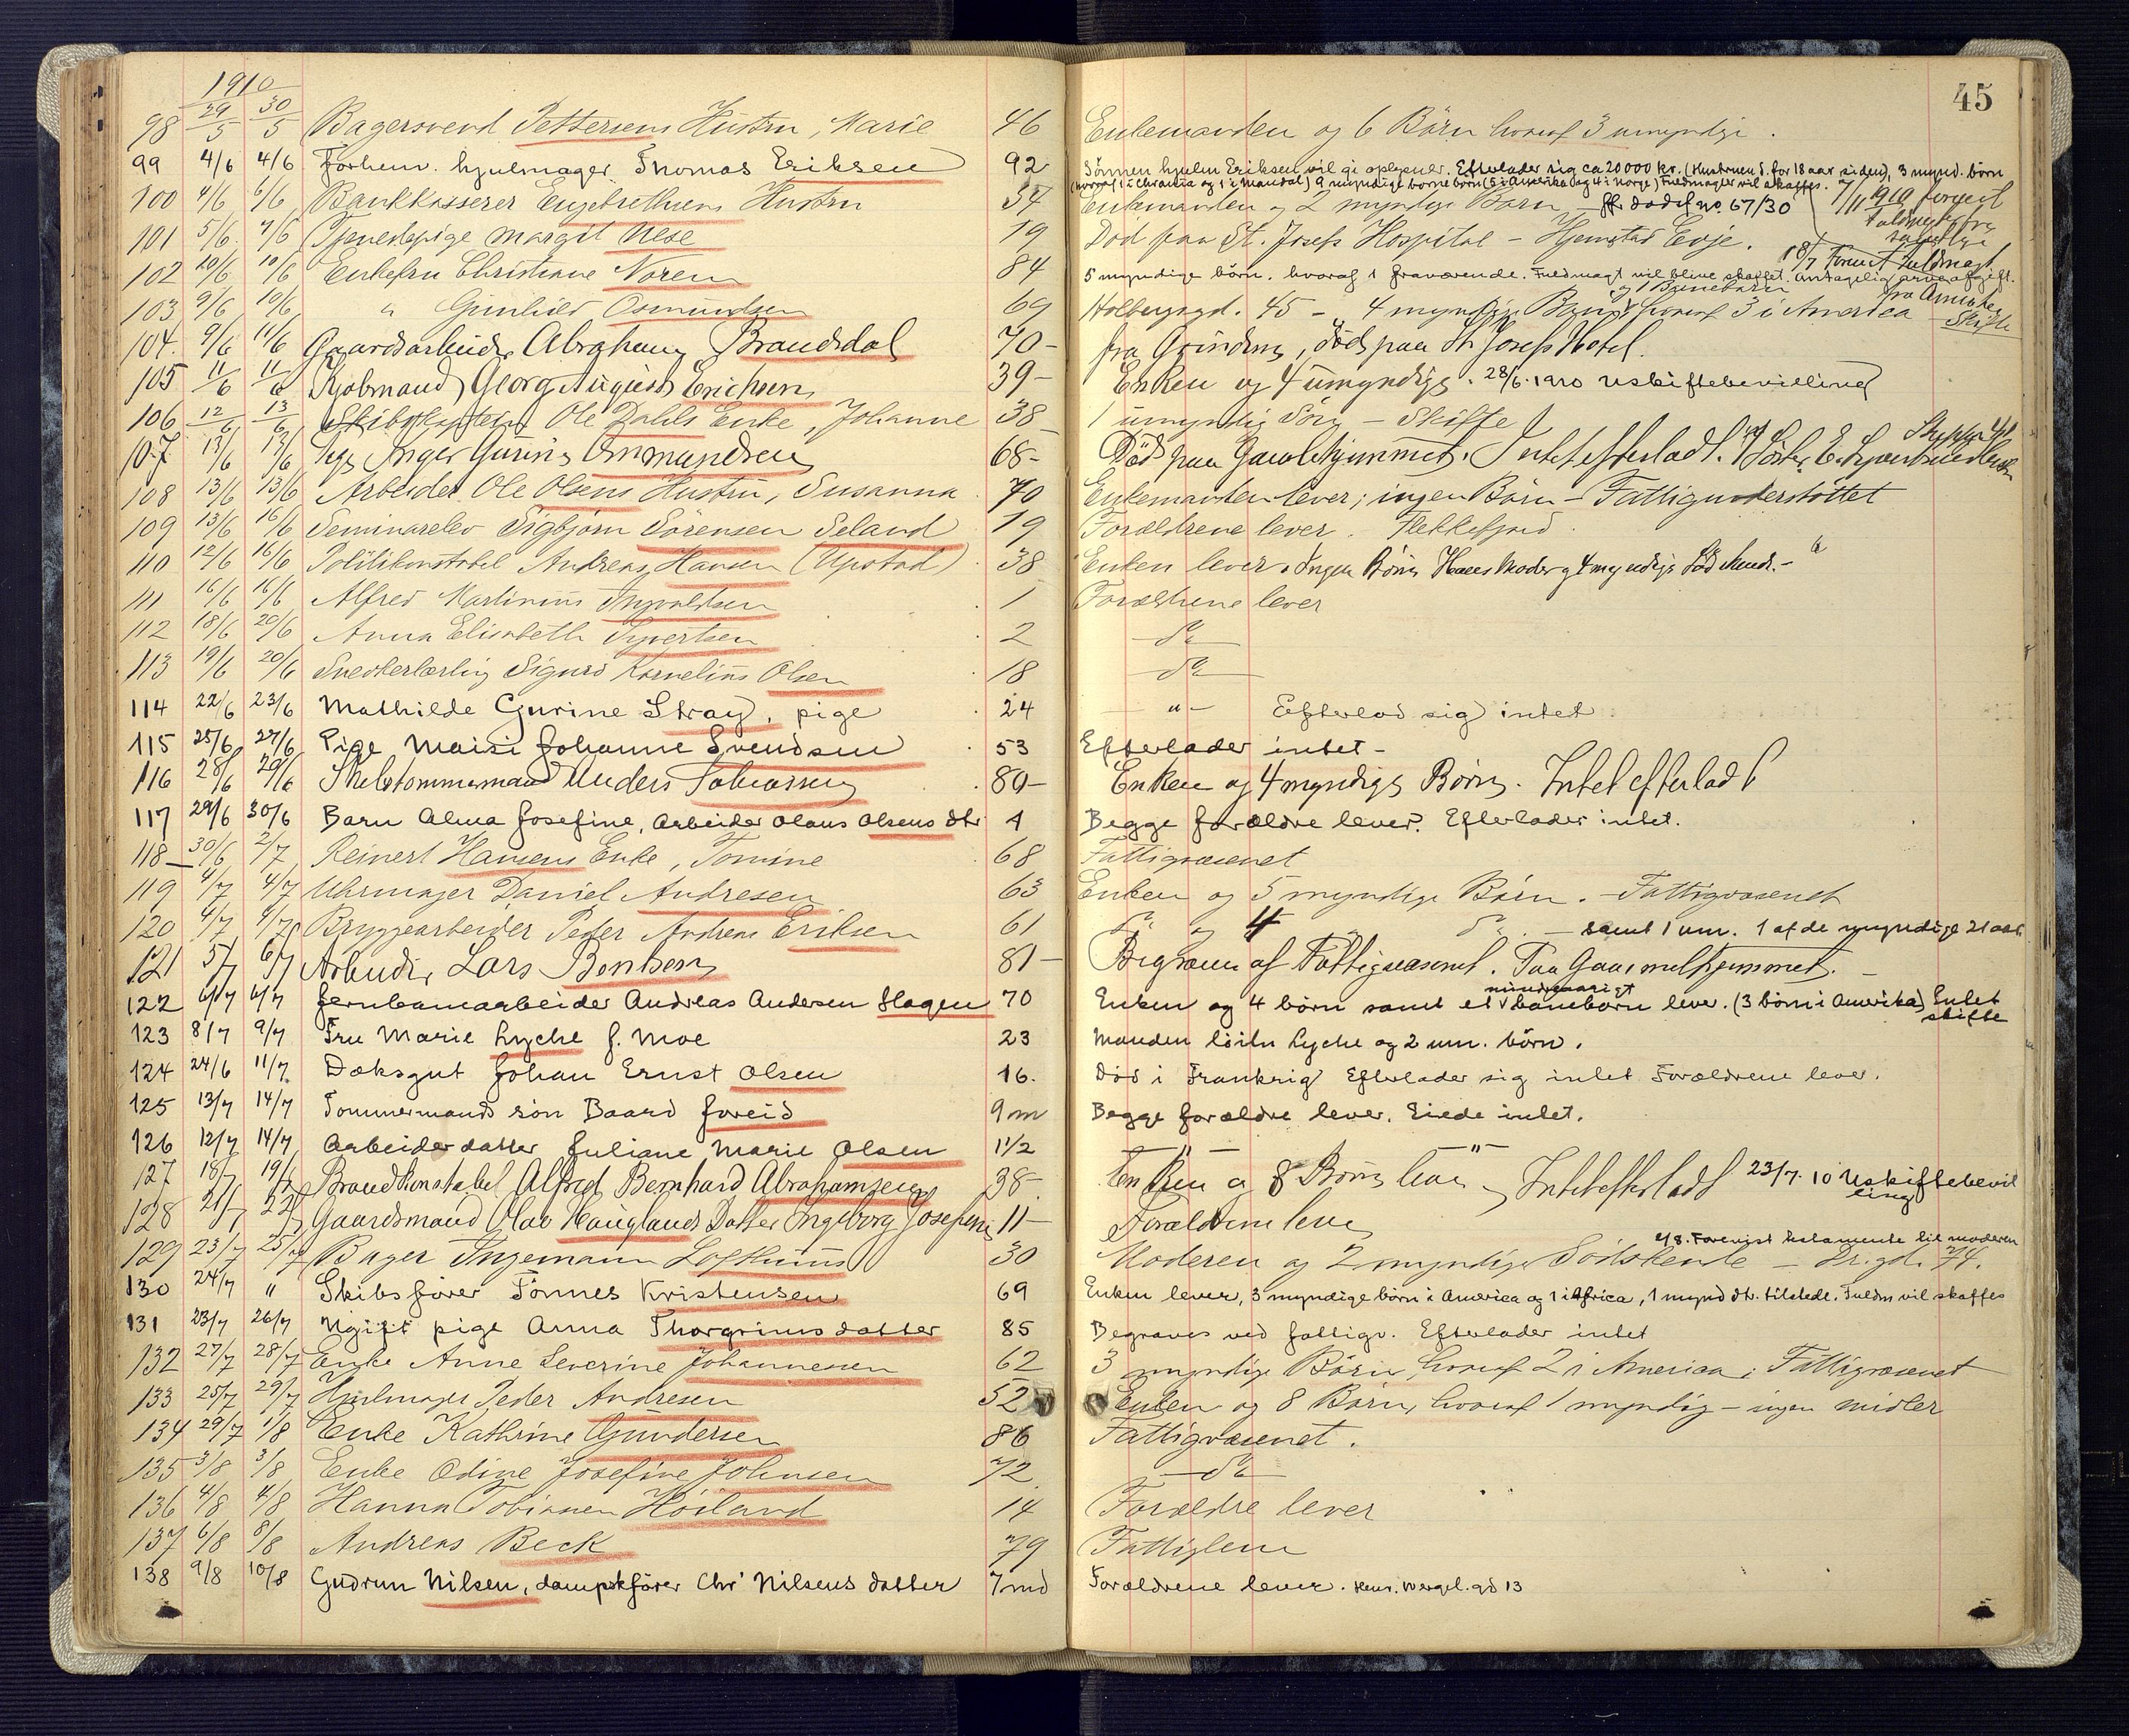 1910
45
98 29/5 30/5 Bagersvend Pettersens Hustru, Marie 46 Enkemanden og 6 Børn hvoraf 3 umyndige.
99 4/6 4/6 Forhenv. hjulmager Thomas Eriksen 92 Sønnen hjulm Eriksen vil gi oplysner. Efterlader sig ca 20000 kr. (Hustruen d. for 18 aar siden), 3 mynd. børn
(hvoraf 1 i Chrania og 1 i Mandal) 9 myndige børnebörn (5 i Amerika og 4 i Norge) Fuldmagter vil skaffes.
7/11 1910 forevist
fuldmagt fra
100 4/6 6/6 Bankkasserer Engebrethsens Hustru 54 Enkemanden og 2 myndige Børn - ffr. dødsf no. 67/30
101 5/6 7/6 Tjenestepige Margit Uese 19 Død paa St. Josefs Hospital - Hjemsted Evje.
18/7 Forevist fuldmagt
fra Amerika
102 10/6 10/6 Enkefru Christiane Noren 84 5 myndige børn, hvoraf 1 fraværende. Fuldmagt vil blive skaffet. Antagelig arveafgift.
og 1 Barnebarn
103 9/6 10/6 " Gunhild Osmundsen 69 Holbergsgd. 45 - 4 myndige Børn hvoraf 3 i America - Skifte
104. 9/6 11/6 Gaardsarbeider Abraham Brandsdal 70- fra Grindum, død paa St Josefs Hotel.
105 11/6 11/6 Kjøbmand Georg August Erichsen 39- Enken og 4 umyndige. 28/6. 1910 Uskiftebevilling
106 12/6 13/6 Skibskaptein Ole Dahls Enke, Johanne 38- 1 umyndig Søn - Skifte
107 13/6 13/6 Pige Inger Gurine Ommundsen 68- Død paa Gamlehjemmet. Intet efterladt. Søster E.
108 13/6 13/6 Arbeider Ole Olsens Hustru, Susanna 70 Enkemanden lever; ingen Børn - Fattigunderstøttet
109 13/6 16/6 Seminarelev Sigbjørn Sørensen Seland 19 Forældrene lever. Flekkefjord.
110 12/6 16/6 Politikonstabel Andreas Hansen (Upstad) 38 Enken lever. Ingen Børn Hans Moder og 4 myndige Sødskend.-
111 16/6 16/6 Alfred Martinius Ingvaldsen 1 Forældrene lever
112 18/6 20/6 Anna Elisabeth Syvertsen 2 do
113 19/6 20/6 Snedkerlærling Sigurd Kornelius Olsen 18 do
114 22/6 23/6 Mathilde Gurine Stray, pige 24 -"- Efterlod sig intet.
115 25/6 27/6 Pige Maisi Johanne Svendsen 53 Efterlader intet -
116 28/6 29/6 Skibstømmermand Anders Tobiassen 80- Enken og 4 myndige Børn. Intet efterladt
117 29/6 30/6 Barn Alma Josefine, Arbeider Olaus Olsens dtr 4 Begge forældre lever. Efterlader intet.
118 30/6 2/7 Reinert Hansens Enke, Tomine 68 Fattigvæsenet
119 4/7 4/7 Uhrmager Daniel Andresen 63 Enken og 5 myndige Børn. - Fattigvæsenet
120 4/7 4/7 Bryggearbeider Peder Andreas Eriksen 61 do og 4 do. - samt 1 um. 1 af de myndige 21 aar
121 5/7 6/7 Arbeider Lars Bentsen 81- Begraves af Fattigvæsenet. Paa Gaarmelhjemmet. -
mindreaarigt
122 6/7 6/7 Jernbanearbeider Andreas Andersen Hagen 70 Enken og 4 børn samt et barnebørn lever. (3 børn i Amerika) Intet
skifte
123 8/7 9/7 Fru Marie Lyche f. Moe 23 Manden løitn Lyche og 2 um. børn.
124 24/6 11/7. Dæksgut Johan Ernst Olsen 16. Død i Frankrig Efterlader sig intet. Forældrene lever.
125 13/7 14/7 Tømmermands søn Baard Joreid 9 m Begge forældre lever. Eiede intet.
126 12/7 14/7 Arbeiderdatter Juliane Marie Olsen 1 1/2 -"- -"-
127 18/7 19/7 Brandkonstabel Alfred Bernhard Abrahamsen 38- Enken og 8 Børn Intet efterladt 23/7. 10 Uskiftebevil
ling
128 21/7 22/7 Gaardsmand Olav Hauglands Datter Ingeborg Josefine 11- Forældrene lever
2/8. Forevist testamente til moderen
129 23/7 25/7 Bager Ingemann Lofthuus 30 Moderen og 2 myndige Sødskende - Dr. gd. 74.
130 24/7 " Skibsfører Tønnes Kristensen 69 Enken lever, 3 myndige børn i America og 1 i Africa, 1 mynd dtr. tilstede. Fuldm vil skaffes
131 23/7 26/7 Ugift pige Anna Thorgrimsdatter 85 Begraves ved fattigv. Efterlader intet
132 27/7 28/7 Enke Anne Severine Johannessen 62 3 myndige Børn, hvoraf 2 i America; Fattigvæsenet
133 25/7 29/7 Hjulmager Peder Andresen 52 Enken og 8 Børn, hvoraf 1 myndig - ingen midler
134 29/7 1/8 Enke Kathrine Gundersen 86 Fattigvæsenet.
135 3/8 3/8 Enke Odine Josefine Johnsen 72 do
136 4/8 4/8 Hanna Tobiassen Høiland 14 Forældre lever
137 6/8 8/8 Andreas Beck 79 Fattiglem
138 9/8 10/8 Gudrun Nilsen, dampskfører Chr' Nilsens datter 7 md Forældrene lever. Henr. Wergel. gd 13